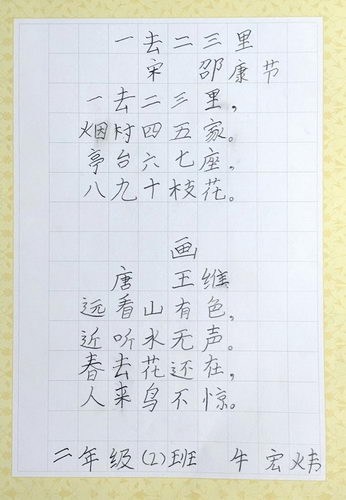 一去二三里
宋 邵康节
一去二三里，
烟村四五家。
亭台六七座，
八九十枝花。
画
唐 王维
远看山有色，
近听水无声。
春去花还在，
人来鸟不惊。
二年级(2)班 牛宏炜